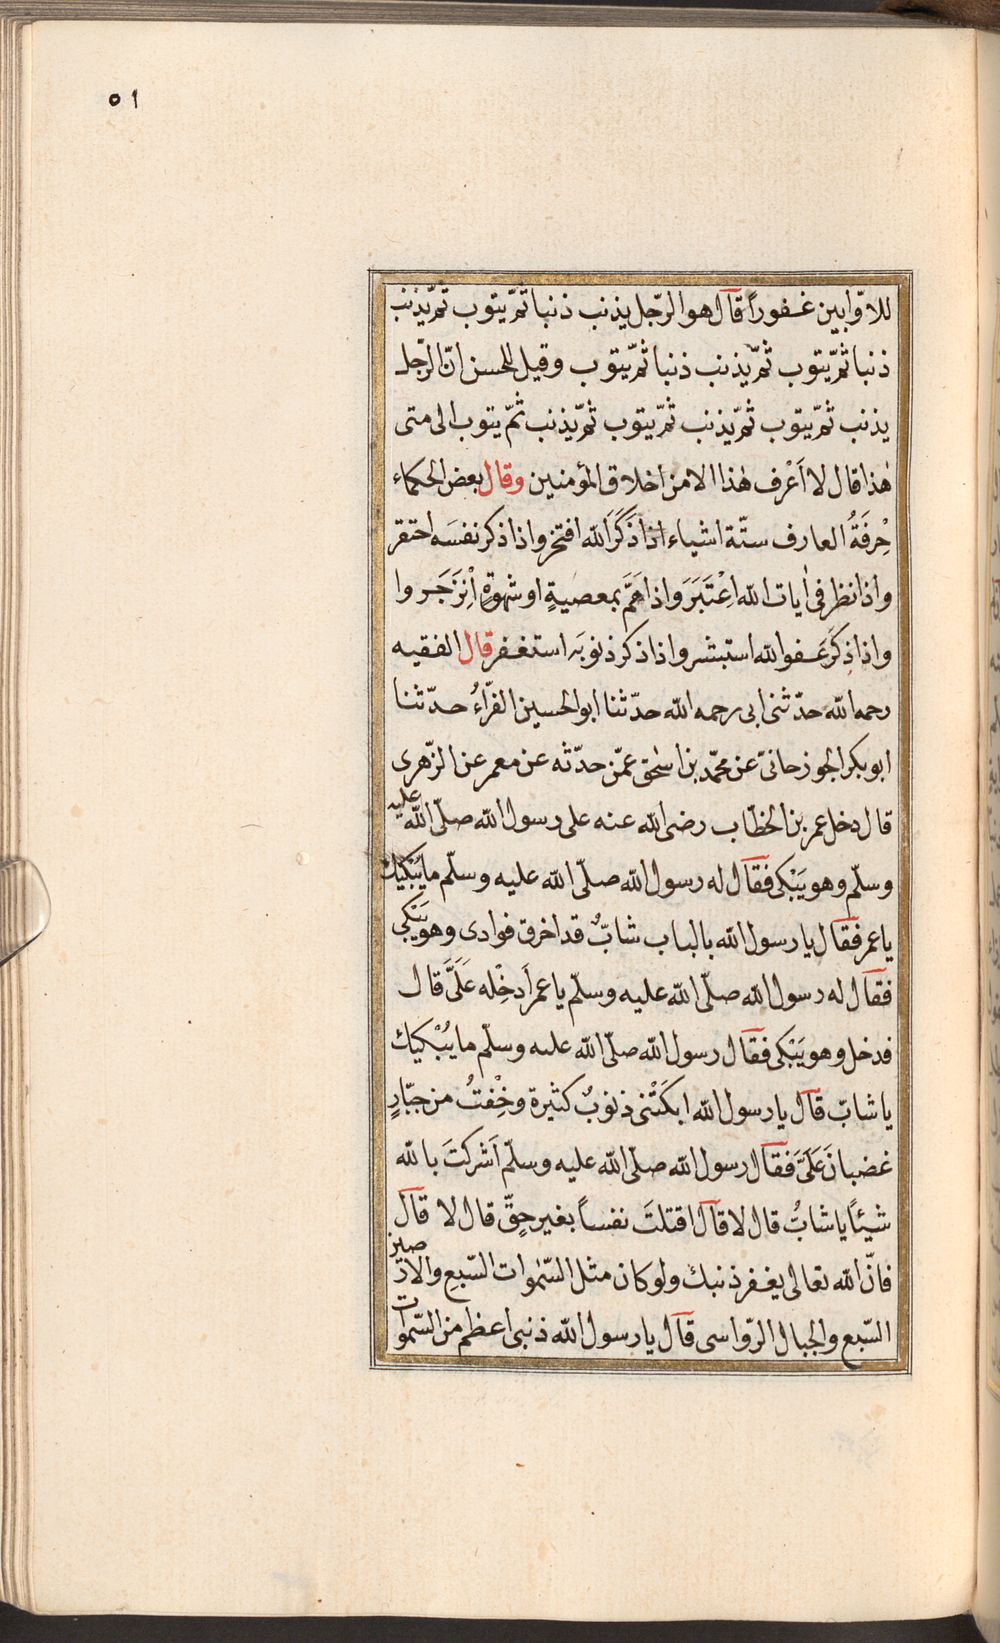 ٥١
للاوّابين غفوراً قال هو الرّجل يذنب ذنبا ثمّ يتوب ثمّ يذنب
ذنبا ثمّ يتوب ثمّ يذنب ذنبا ثمّ يتوب وقيل للحسن انّ الرّجل
يذنب ثمّ يتوب ثمّ يذنب ثمّ يتوب ثمّ يذنب ثمّ يتوب الى متى
هٰذا قال لا اَعْرف هٰذا الا من اخلاق المؤمنين وقال بعض الحكماء
حْرِفَةُ العارف ستّة اشياء اذا ذَكَرَ الله افتخر واذا ذكر نفسَه احتقر
واذا نظر فى اٰيات الله اِعْتَبَرَ واذا هَمَّ بمعصيةٍ او شهوةٍ اْنِزَجَروا
واذا ذِكَرَ عَفو الله استبشر واذا ذكر ذنوبَه استغفر قال الفقيه
رحمه الله حدّثنى ابى رحمه الله حدّثنا ابو الحسين الفرّاءُ حدّثنا
ابو بكر الجوزجانىّ عن محمّد بن اسحٰق عمّن حدّثه عن معمر عن الزّهرى
قال دخل عمر بن الخطّاب رضى الله عنه على رسول الله صلّى الله عليه
وسلّم وهو يَبْكى فقال له رسول الله صلّى الله عليه وسلّم ما يُبْكيك
يا عمر فقال يا رسول الله بالباب شابٌّ قد اخرق فوادى وهو يَبْكى
فقال له رسول الله صلّى الله عليه وسلّم يا عمر اَدخِْله عَلَىَّ قال
فدخل وهو يَبْكى فقال رسول الله صلّى الله عليه وسلّم ما يُبْكيك
يا شابّ قال يا رسول الله ابكَتْنى ذنوبٌ كثيرة وخِْفتُ من جبّارٍ
غضبانَ عَلَىَّ فقال رسول الله صلّى الله عليه وسلّم اَشركتَ بالله
شيئاً يا شابُّ قال لا قال اقتلتَ نفساً بغير حقٍّ قال لا قال
فانّ الله تعالى يغفر ذنبك ولو كان مثل السّمٰوات السّبع والارضين
السّبع والجبال الرّواسى قال يا رسول الله ذنبى اعظم من السّموات